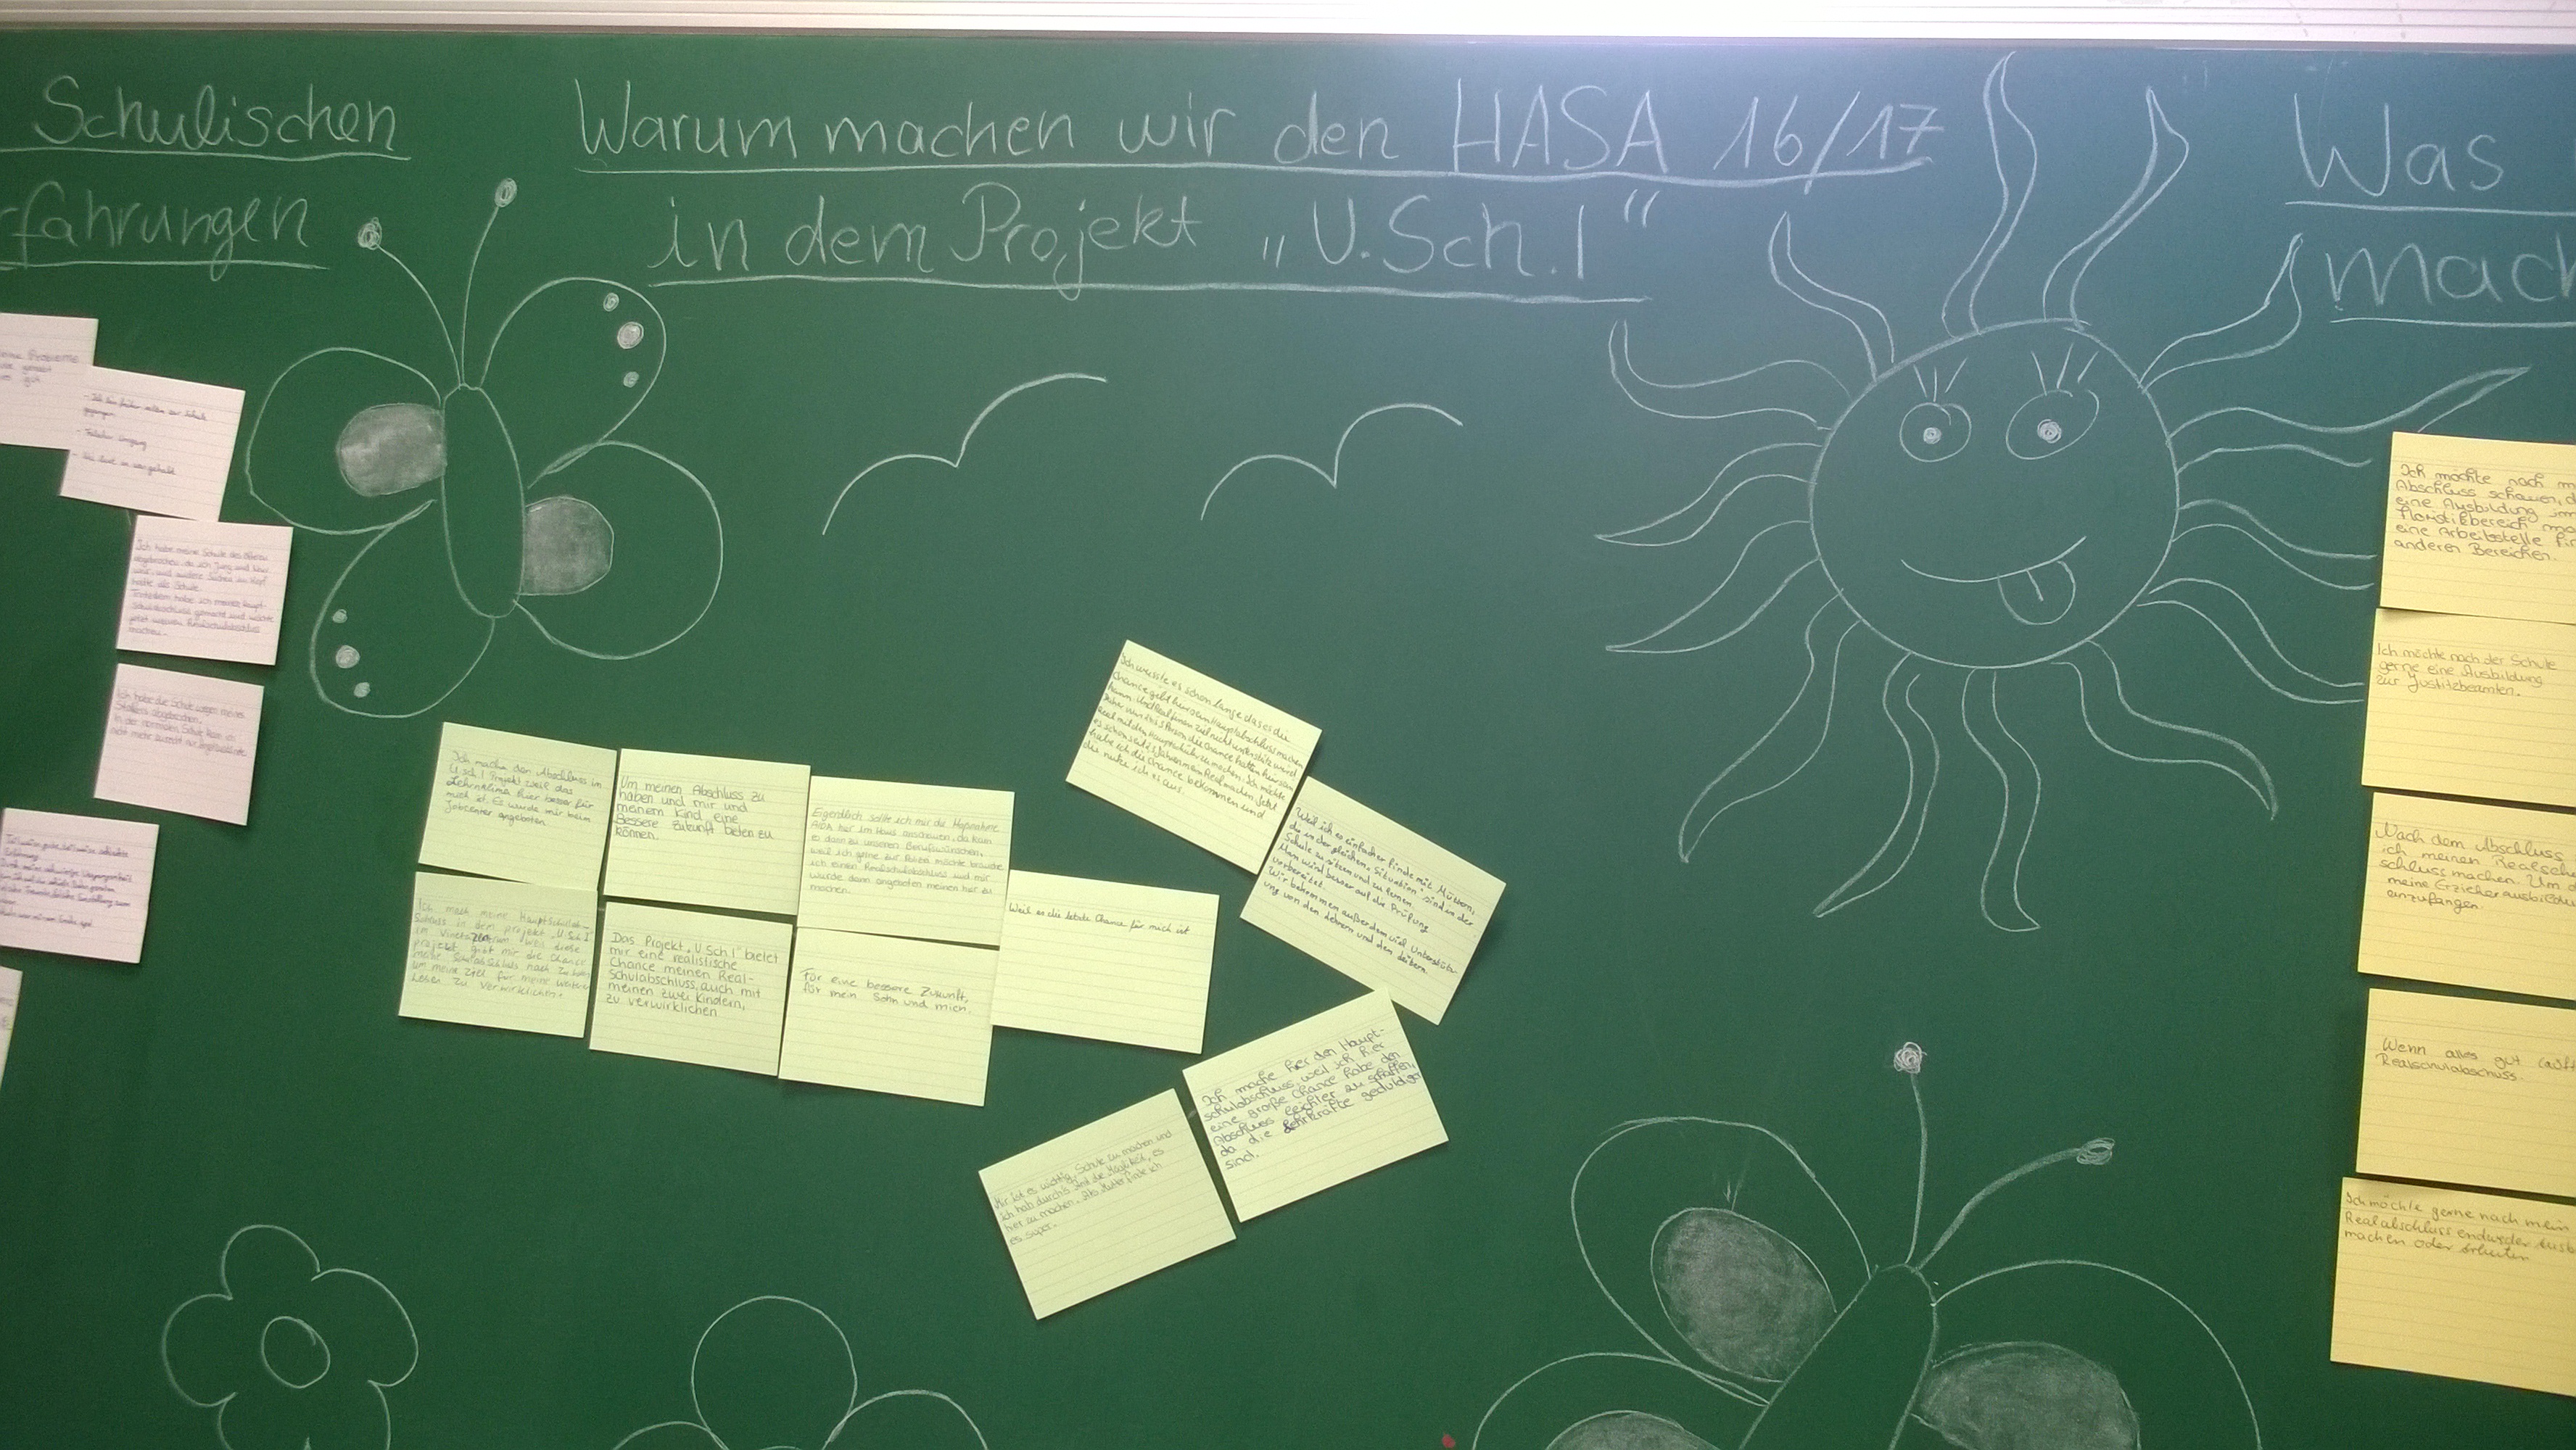 Schulischen
fahrungen
Warum machen wir den HASA 16/17
in dem Projekt „U.Sch.I“
Was
mach
Probleme
- Ich bin früher selten zur Schule
gegangen
- Falscher Umgang
Ich habe meine Schule des öfteren
abgebrochen, da ich jung und
war, und andere Sachen im Kopf
hatte als Schule.
Trotzdem habe ich meinen Haupt-
schulabschluss gemacht und möchte
jetzt meinen Realschulabschluss
machen.
Ich habe die Schule wegen meines
abgebrochen.
In der normalen Schule kam ich
nicht mehr zurecht
Ich mache den Abschluss im
U.Sch.I Projekt weil das
Lehrnklima hier besser für
mich ist. Es wurde mir beim
Jobcenter angeboten.
Um meinen Abschluss zu
haben und mir und
meinem Kind eine
Bessere Zukunft bieten zu
können.
Eigentlich sollte ich mir die Maßnahme
AIDA hier im Haus anschauen, da kam
es dann zu unseren Berufswünschen,
weil ich gerne zur Polizei möchte brauche
ich einen Realschulabschluss und mir
wurde dann angeboten meinen hier zu
machen.
Ich mach meine Hauptschulab-
schluss in dem projekt „U.Sch.I“
im Vinetazentrum weil diese
projekt gibt mir die Chance
meine Schulabschluss nach zu holen
um meine Ziel für meine weitere
Leben zu verwirklichen.
Das Projekt „U.Sch.I“ bietet
mir eine realistische
Chance meinen Real-
schulabschluss, auch mit
meinen zwei Kindern,
zu verwirklichen
Für eine bessere Zukunft,
für mein Sohn und mich.
Weil es die letzte Chance für mich ist
Ich wusste es schon lange das es die
Chance gibt hier sein Hauptabschluss machen
kann und Real finanziel nicht unterstützt wird
Daher wir 2 bis 3 Person die Chance hatten hier sein
Real mit den Hauptschüler zu machen. Ich möchte
es schon seit 2 Jahren mein Real machen. Jetzt
habe ich die Chance bekommen und
die nutze ich es aus.
Weil ich es einfacher finde mit Müttern,
die in der gleichen „Situation“ sind in der
Schule zu sitzen und zu lernen.
Man wird besser auf die Prüfung
vorbereitet.
Wir bekommen außerdem viel Unterstütz-
ung von den Lehrern und den
Ich mache hier den Haupt-
schulabschluss, weil ich hier
eine große Chance habe den
Abschluss leichter zu schaffen,
da die Lehrkräfte geduldiger
sind.
Mir ist es wichtig, Schule zu machen und
ich hab durch's Amt die Möglichkeit, es
hier zu machen. Als Mutter finde ich
es super.
Ich möchte nach m
Abschluss schauen, d
eine Ausbildung im
Floristikbereich ma
eine Arbeitstelle fin
anderen Bereichen.
Ich möchte nach der Schule
gerne eine Ausbildung
zur Justizbeamten.
Nach dem Abschluss
ich meinen Realschu
schluss machen. Um d
meine Erzieher ausbildu
anzufangen.
Wenn alles gut läuft
Realschulabschuss.
Ich möchte gerne nach mein
Realabschluss endweder Ausb
machen oder Arbeiten